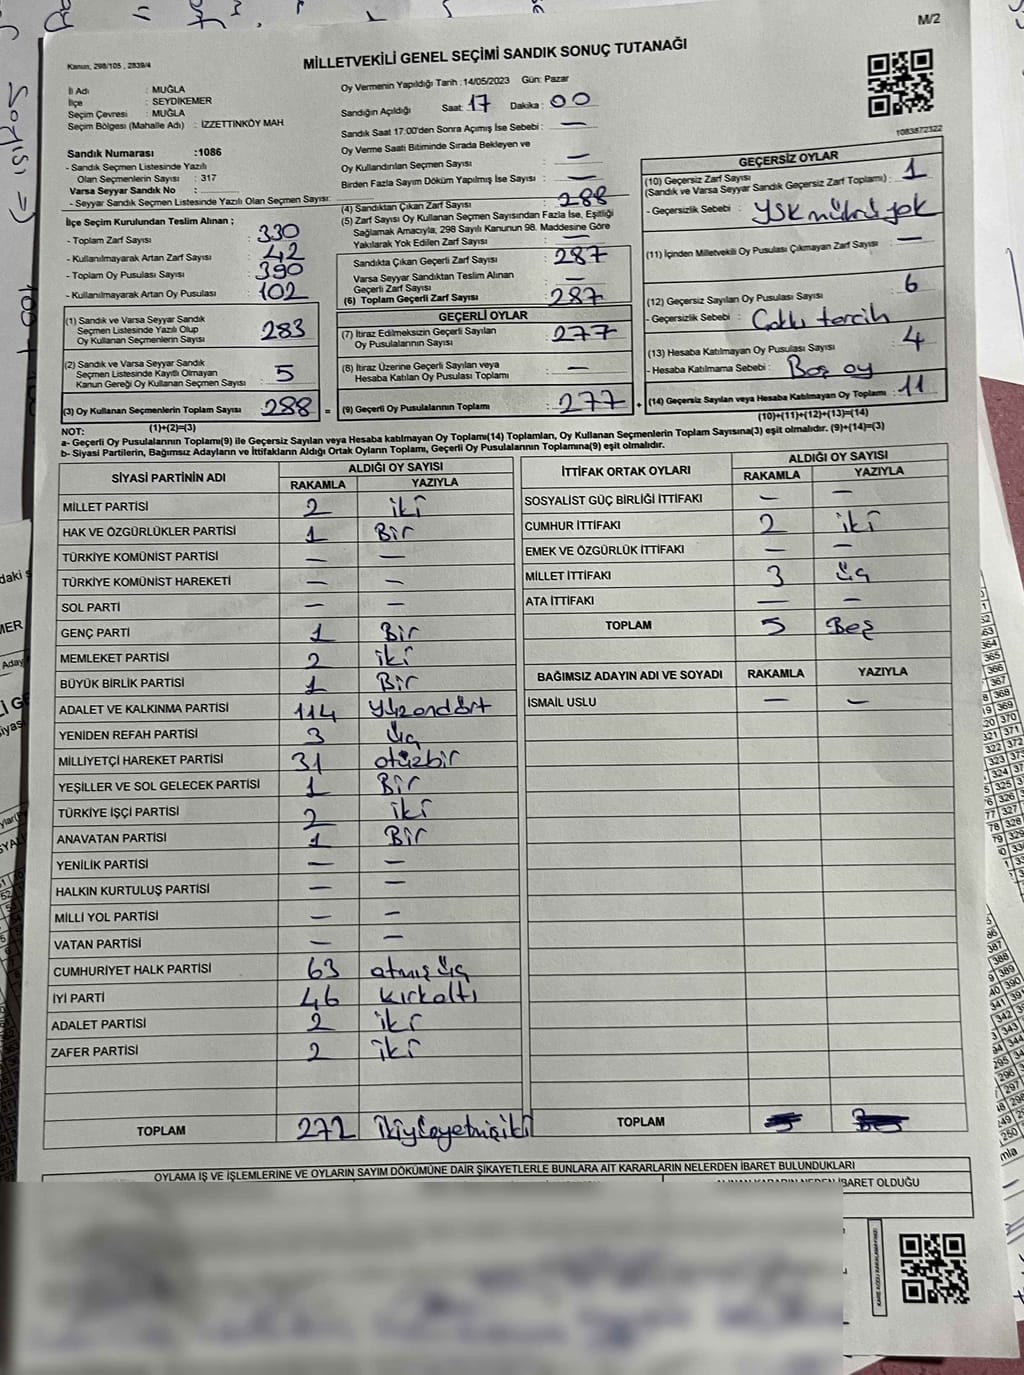 M/2
Kanun, 298/105 , 2839/4
MİLLETVEKİLİ GENEL SEÇİMİ SANDIK SONUÇ TUTANAĞI
İl Adı : MUĞLA
İlçe : SEYDİKEMER
Seçim Çevresi : MUĞLA
Seçim Bölgesi (Mahalle Adı) : İZZETTİNKÖY MAH
Sandık Numarası :1086
- Sandık Seçmen Listesinde Yazılı
Olan Seçmenlerin Sayısı : 317
Varsa Seyyar Sandık No :
- Seyyar Sandık Seçmen Listesinde Yazılı Olan Seçmen Sayısı:
Oy Vermenin Yapıldığı Tarih :14/05/2023 Gün: Pazar
Sandığın Açıldığı Saat: 17 Dakika : 00
Sandık Saat 17:00'den Sonra Açımış İse Sebebi : —
Oy Verme Saati Bitiminde Sırada Bekleyen ve
Oy Kullandırılan Seçmen Sayısı : —
Birden Fazla Sayım Döküm Yapılmış İse Sayısı : —
1083872322
İlçe Seçim Kurulundan Teslim Alınan ;
- Toplam Zarf Sayısı : 330
- Kullanılmayarak Artan Zarf Sayısı : 42
- Toplam Oy Pusulası Sayısı : 390
- Kullanılmayarak Artan Oy Pusulası : 102
(1) Sandık ve Varsa Seyyar Sandık
Seçmen Listesinde Yazılı Olup
Oy Kullanan Seçmenlerin Sayısı : 283
(2) Sandık ve Varsa Seyyar Sandık
Seçmen Listesinde Kayıtlı Olmayan
Kanun Gereği Oy Kullanan Seçmen Sayısı : 5
(3) Oy Kullanan Seçmenlerin Toplam Sayısı : 288 =
(1)+(2)=(3)
(4) Sandıktan Çıkan Zarf Sayısı : 288
(5) Zarf Sayısı Oy Kullanan Seçmen Sayısından Fazla İse, Eşitliği
Sağlamak Amacıyla, 298 Sayılı Kanunun 98. Maddesine Göre
Yakılarak Yok Edilen Zarf Sayısı : —
Sandıkta Çıkan Geçerli Zarf Sayısı : 287
Varsa Seyyar Sandıktan Teslim Alınan
Geçerli Zarf Sayısı : —
(6) Toplam Geçerli Zarf Sayısı : 287
GEÇERLİ OYLAR
(7) İtiraz Edilmeksizin Geçerli Sayılan
Oy Pusulalarının Sayısı : 277
(8) İtiraz Üzerine Geçerli Sayılan veya
Hesaba Katılan Oy Pusulası Toplamı : —
(9) Geçerli Oy Pusulalarının Toplamı : 277 +
GEÇERSİZ OYLAR
(10) Geçersiz Zarf Sayısı
(Sandık ve Varsa Seyyar Sandık Geçersiz Zarf Toplamı) : 1
- Geçersizlik Sebebi : YSK mührü yok
(11) İçinden Milletvekili Oy Pusulası Çıkmayan Zarf Sayısı : —
(12) Geçersiz Sayılan Oy Pusulası Sayısı : 6
- Geçersizlik Sebebi : Çoklu tercih
(13) Hesaba Katılmayan Oy Pusulası Sayısı : 4
- Hesaba Katılmama Sebebi : Boş oy
(14) Geçersiz Sayılan veya Hesaba Katılmayan Oy Toplamı : 11
(10)+(11)+(12)+(13)=(14)
NOT:
a- Geçerli Oy Pusulalarının Toplamı(9) ile Geçersiz Sayılan veya Hesaba katılmayan Oy Toplamı(14) Toplamları, Oy Kullanan Seçmenlerin Toplam Sayısına(3) eşit olmalıdır. (9)+(14)=(3)
b- Siyasi Partilerin, Bağımsız Adayların ve İttifakların Aldığı Oyların Toplamı, Geçerli Oy Pusulalarının Toplamına(9) eşit olmalıdır.
SİYASİ PARTİNİN ADI ALDIĞI OY SAYISI
RAKAMLA YAZIYLA
MİLLET PARTİSİ 2 iki
HAK VE ÖZGÜRLÜKLER PARTİSİ 1 Bir
TÜRKİYE KOMÜNİST PARTİSİ — —
TÜRKİYE KOMÜNİST HAREKETİ — —
SOL PARTİ — —
GENÇ PARTİ 1 Bir
MEMLEKET PARTİSİ 2 iki
BÜYÜK BİRLİK PARTİSİ 1 Bir
ADALET VE KALKINMA PARTİSİ 114 Yüzondört
YENİDEN REFAH PARTİSİ 3 üç
MİLLİYETÇİ HAREKET PARTİSİ 31 otuzbir
YEŞİLLER VE SOL GELECEK PARTİSİ 1 Bir
TÜRKİYE İŞÇİ PARTİSİ 2 iki
ANAVATAN PARTİSİ 1 Bir
YENİLİK PARTİSİ — —
HALKIN KURTULUŞ PARTİSİ — —
MİLLİ YOL PARTİSİ — —
VATAN PARTİSİ — —
CUMHURİYET HALK PARTİSİ 63 atmış üç
İYİ PARTİ 46 kırkaltı
ADALET PARTİSİ 2 iki
ZAFER PARTİSİ 2 iki
TOPLAM 272 ikiyüzyetmişiki
İTTİFAK ORTAK OYLARI ALDIĞI OY SAYISI
RAKAMLA YAZIYLA
SOSYALİST GÜÇ BİRLİĞİ İTTİFAKI — —
CUMHUR İTTİFAKI 2 iki
EMEK VE ÖZGÜRLÜK İTTİFAKI — —
MİLLET İTTİFAKI 3 üç
ATA İTTİFAKI — —
TOPLAM 5 Beş
BAĞIMSIZ ADAYIN ADI VE SOYADI RAKAMLA YAZIYLA
İSMAİL USLU — —
TOPLAM
OYLAMA İŞ VE İŞLEMLERİNE VE OYLARIN SAYIM DÖKÜMÜNE DAİR ŞİKAYETLERLE BUNLARA AİT KARARLARIN NELERDEN İBARET BULUNDUKLARI
İBARET OLDUĞU